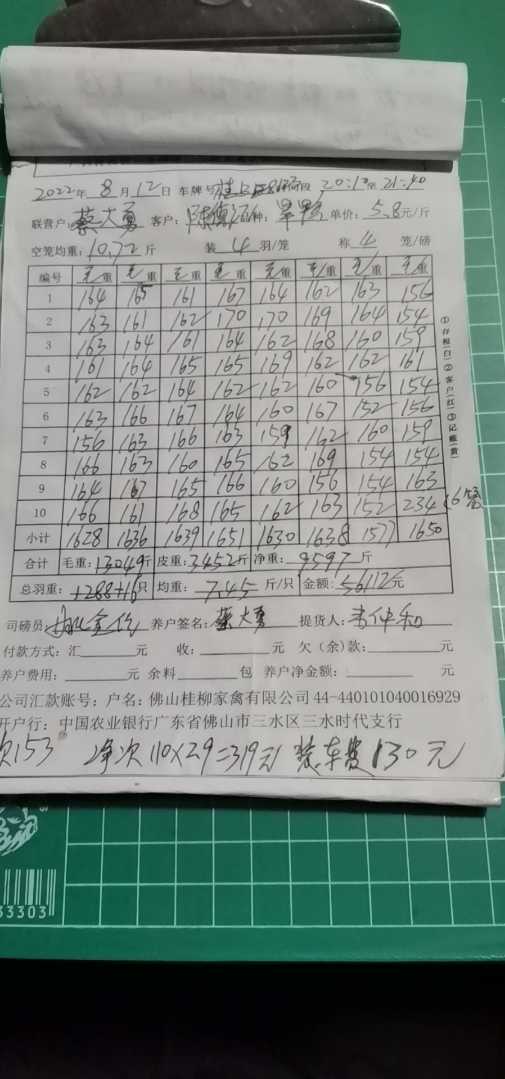 2022年 8月12日 车牌号 段 20:1 至 21:40
联营户: 蔡大勇 客户: 品种: 旱鸭 单价: 5.8元/斤
空笼均重: 10.72斤 装 4 羽/笼 称 4 笼/磅
编号 毛重 毛重 毛重 毛重 毛重 毛重 毛重 毛重
1 164 165 161 167 164 162 163 156
2 163 161 162 170 170 169 164 154
3 163 164 161 164 162 168 160 159
4 161 164 165 165 169 162 162 161
5 162 162 164 162 162 160 156 154
6 163 166 167 164 160 167 152 156
7 156 163 166 163 159 162 160 159
8 166 163 160 165 162 169 154 154
9 164 167 165 166 160 156 154 163
10 166 161 168 165 162 163 152 234 (6笼
小计 1628 1636 1639 1651 1630 1638 1577 1650
合计 毛重: 13049斤 皮重: 3452斤 净重: 9597斤
总羽重: 1288+16只 均重: 7.45 斤/只 金额: 56112元
司磅员: 养户签名: 蔡大勇 提货人: 韦仲和
付款方式: 汇 元 收: 元 欠(余)款: 元
养户费用: 元 余料 包 养户净金额: 元
公司汇款账号: 户名: 佛山桂柳家禽有限公司 44-440101040016929
开户行: 中国农业银行广东省佛山市三水区三水时代支行
次153 净次 110×2.9=319元 装车费 130元
①存根(白)②客户(红)③记账(黄)
33303